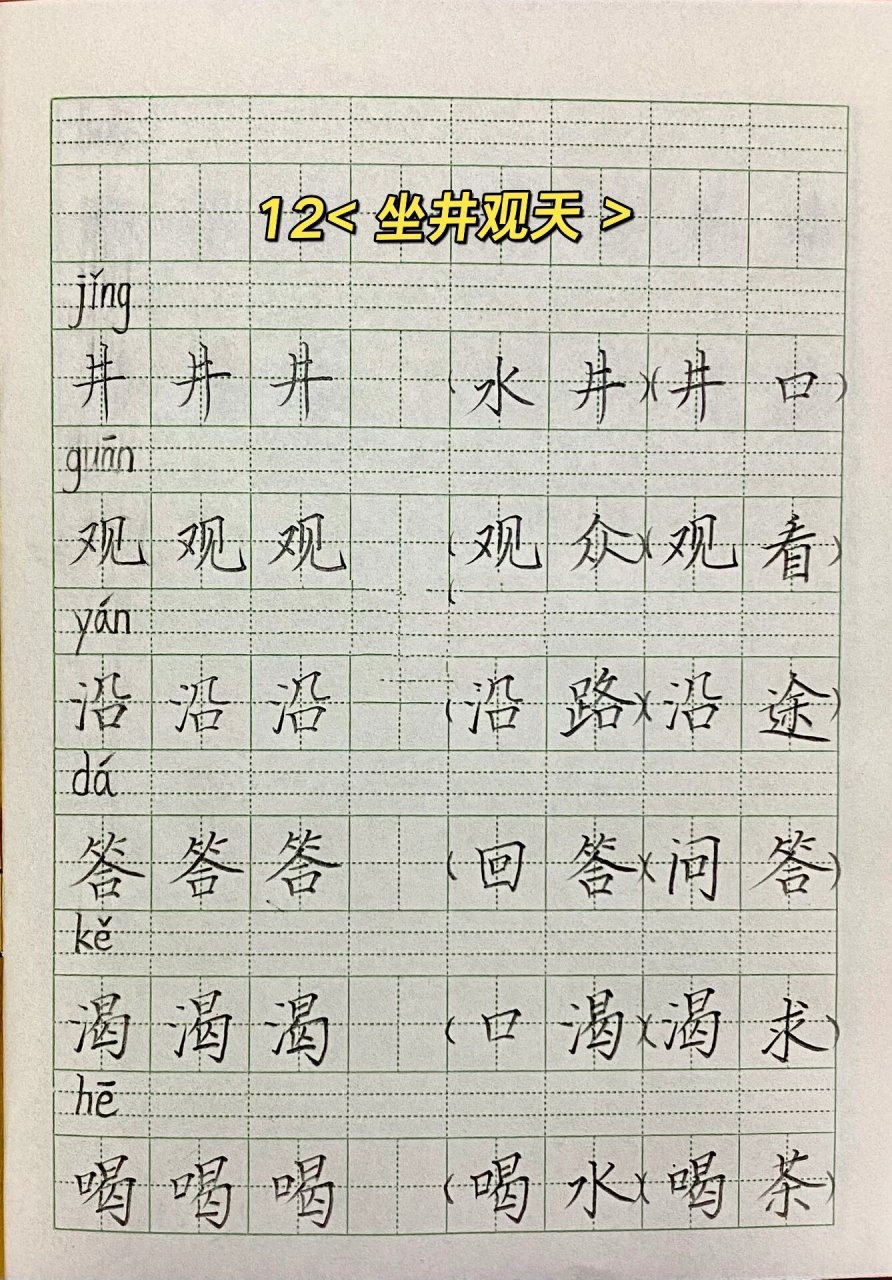 12< 坐井观天 >
jǐng
井 井 井 (水井)(井口)
guān
观 观 观 (观众)(观看)
yán
沿 沿 沿 (沿路)(沿途)
dá
答 答 答 (回答)(问答)
kě
渴 渴 渴 (口渴)(渴求)
hē
喝 喝 喝 (喝水)(喝茶)